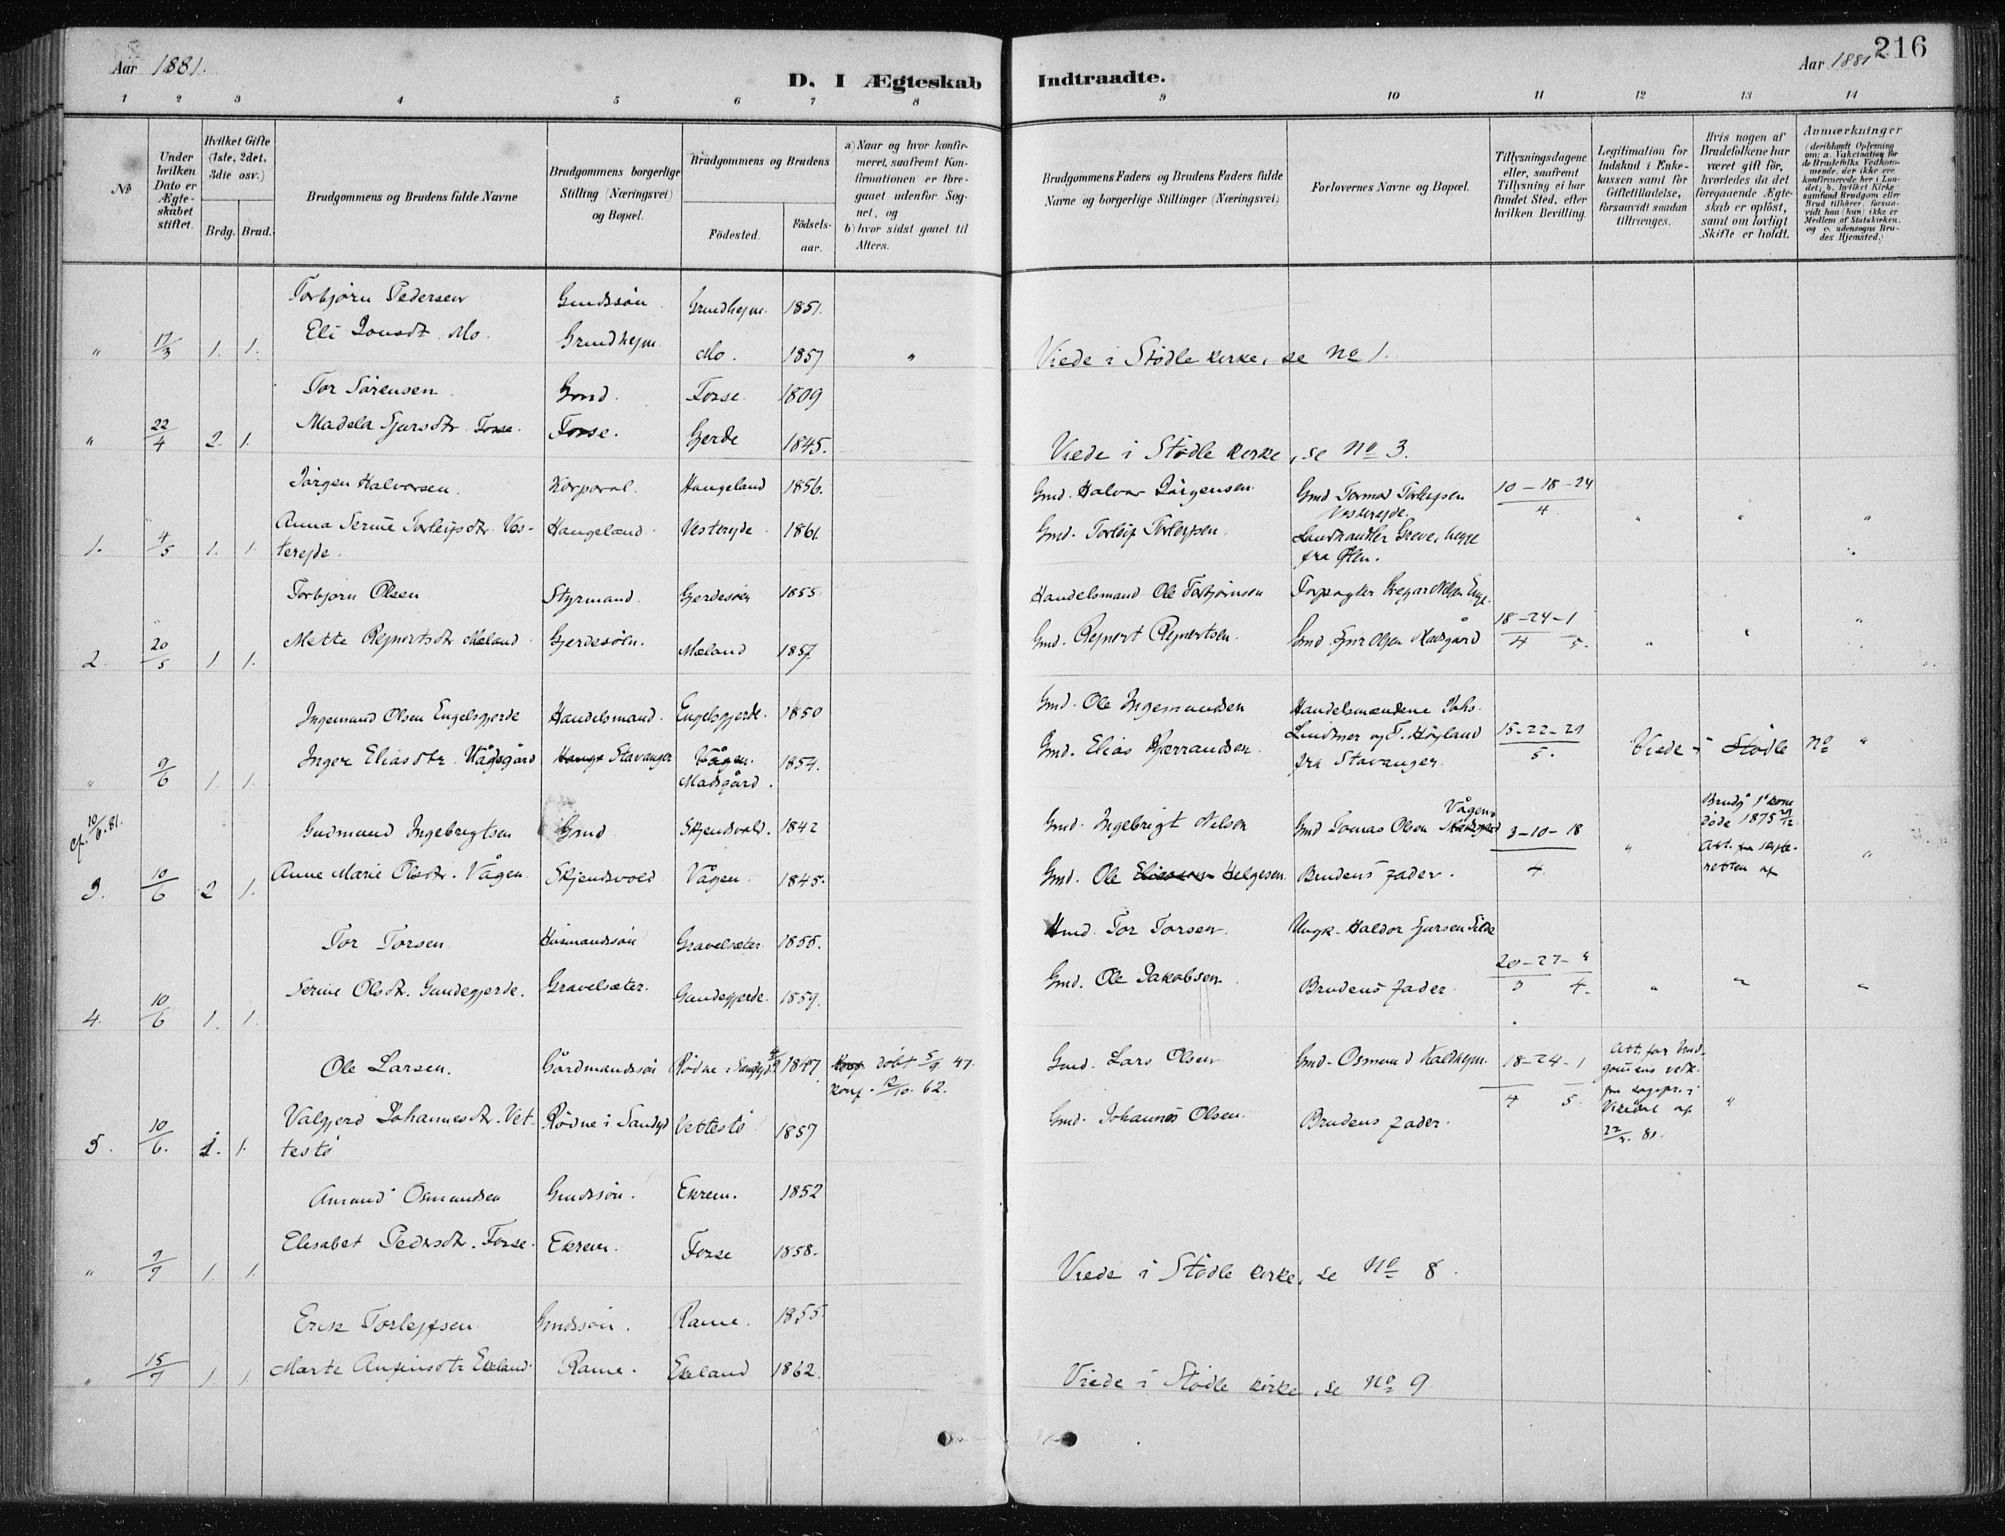 Aar 1881.
D. I Ægteskab Indtraadte.
Aar 1881
216
1 2 3 4 5 6 7 8 9 10 11 12 13 14
No
Under hvilken Dato er Ægteskabet stiftet.
Hvilket Gifte (1ste, 2det, 3die osv.)
Brdg. Brud.
Brudgommens og Brudens fulde Navne
Brudgommens borgerlige Stilling (Næringsvei) og Bopæl.
Brudgommens og Brudens
Födested.
Födselsaar.
a) Naar og hvor konfirmeret, saafremt Konfirmationen er foregaaet udenfor Sognet, og
b) hvor sidst gaaet til Alters.
Brudgommens Faders og Brudens Faders fulde Navne og borgerlige Stillinger (Næringsvei)
Forlovernes Navne og Bopæl.
Tillysningsdagene eller, saafremt Tillysning ei har fundet Sted, efter hvilken Bevilling.
Legitimation for Indskud i Enkekassen samt for Giftetilladelse, forsaavidt saadan tiltrænges.
Hvis nogen af Brudefolkene har været gift för, hvorledes da det foregaaende Ægteskab er oplöst, samt om lovligt Skifte er holdt.
Anmærkninger (deriblandt Oplysning om: a. Vakcination for de Brudefolks Vedkommende, der ikke ere konfirmerede her i Landet; b. hvilket Kirkesamfund Brudgom eller Brud tilhörer, forsaavidt han (hun) ikke er Medlem af Statskirken, og c. udensogns Brudes Hjemsted.)
Torbjørn Pedersen Gmdssøn Grindhejm. 1851.
" 17/3 1. 1. Eli Jonsdt. Mo. Grindhejm Mo. 1857 " Viede i Stødle kirke, se No 1.
Tor Sørensen Gmd. Forse 1809
" 22/4 2. 1. Madela Gjursdtr. Forse. Forse. Gjerde 1845. Viede i Stødle kirke, se No 3.
Jørgen Halvorsen. Korporal. Haugeland 1856. Gmd. Halvor Jørgensen Gmd Tormod Torlejsen Vesterejde. 10-18-24/4
1. 4/5 1. 1. Anna Serine Torlejsdtr. Vesterejde. Haugeland Vesterejde 1861 Gmd. Torleif Torlejsen. Landhandler fra Ølen. " " "
Torbjørn Olsen Styrmand. Gjerdesøen 1855 Handelsmand Ole Torbjørnsen Forpagter
2. 20/5 1. 1. Mette Rejnertsdtr Mæland Gjerdesøen. Mæland 1857. Gmd. Rejnert Rejnertsen. Gmd. Gjur Olsen Madsgård 18-24-1 4 5. " " "
Ingemund Olsen Engelsgjerde Handelsmand. Engelsgjerde. 1850 Gmd. Ole Ingemundsen Handelsmændene Johs. Lindtner og T. Høyland fra Stavanger. 15-22-29/5.
" 9/6 1. 1. Inger Eliasdtr. Vågsgård Stavanger Vågen. Madsgård. 1854. Gmd. Elias Viede i Stødle No "
cf. 10/6.81.
Gudmund Ingebrigtsen Gmd Skjensvold. 1842 Gmd. Ingebrigt Nilsen Gmd Tomas Olsen Vågen 3-10-18/4 Brudg. 1e kone døde 1875
3. 10/6 2 1. Anne Marie Olsdtr. Vågen Skjensvold Vågen 1845. Gmd. Ole Helgesen. Brudens fader. " Att. fra skifteretten af "
Tor Torsen Husmandssøn Gravelsæter 1855. Hmd. Tor Torsen. Ungk. Haldor Gjursen Silde
4. 10/6 1. 1. Serine Olsdt. Gundegjerde. Gravelsæter. Gundegjerde. 1859. Gmd. Ole Jakobsen Brudens fader 20-27-3 3 4. " " "
Ole Larsen. Gårdmandssøn Rødne i Sandejd 1847 døbt 5/9 47. konf. 12/10 62. Gmd. Lars Olsen Gmd. Osmund Kaldhejm. 18-24-1 4 5. Att. for brudgommens vedk. fra sognepr. i Vikedal af 22/3. 81.
5. 10/6. 1. 1. Valgjerd Johannesdtr. Vettestø Rødne i Sandejd Vettestø 1857 Gmd. Johannes Olsen. Brudens fader. "
Amund Osmundsen Gmdssøn. Ekrem. 1852
" 9/7 1. 1. Elisabet Pedersdtr. Forse. Ekrem. Forse 1858. Viede i Stødle kirke, se No 8.
Erik Torlejfsen Gmdssøn. Rame. 1855
" 15/7 1. 1. Marte Anfinsdtr Ekland Rame. Ekland 1862. Viede i Stødle kirke, se No 9